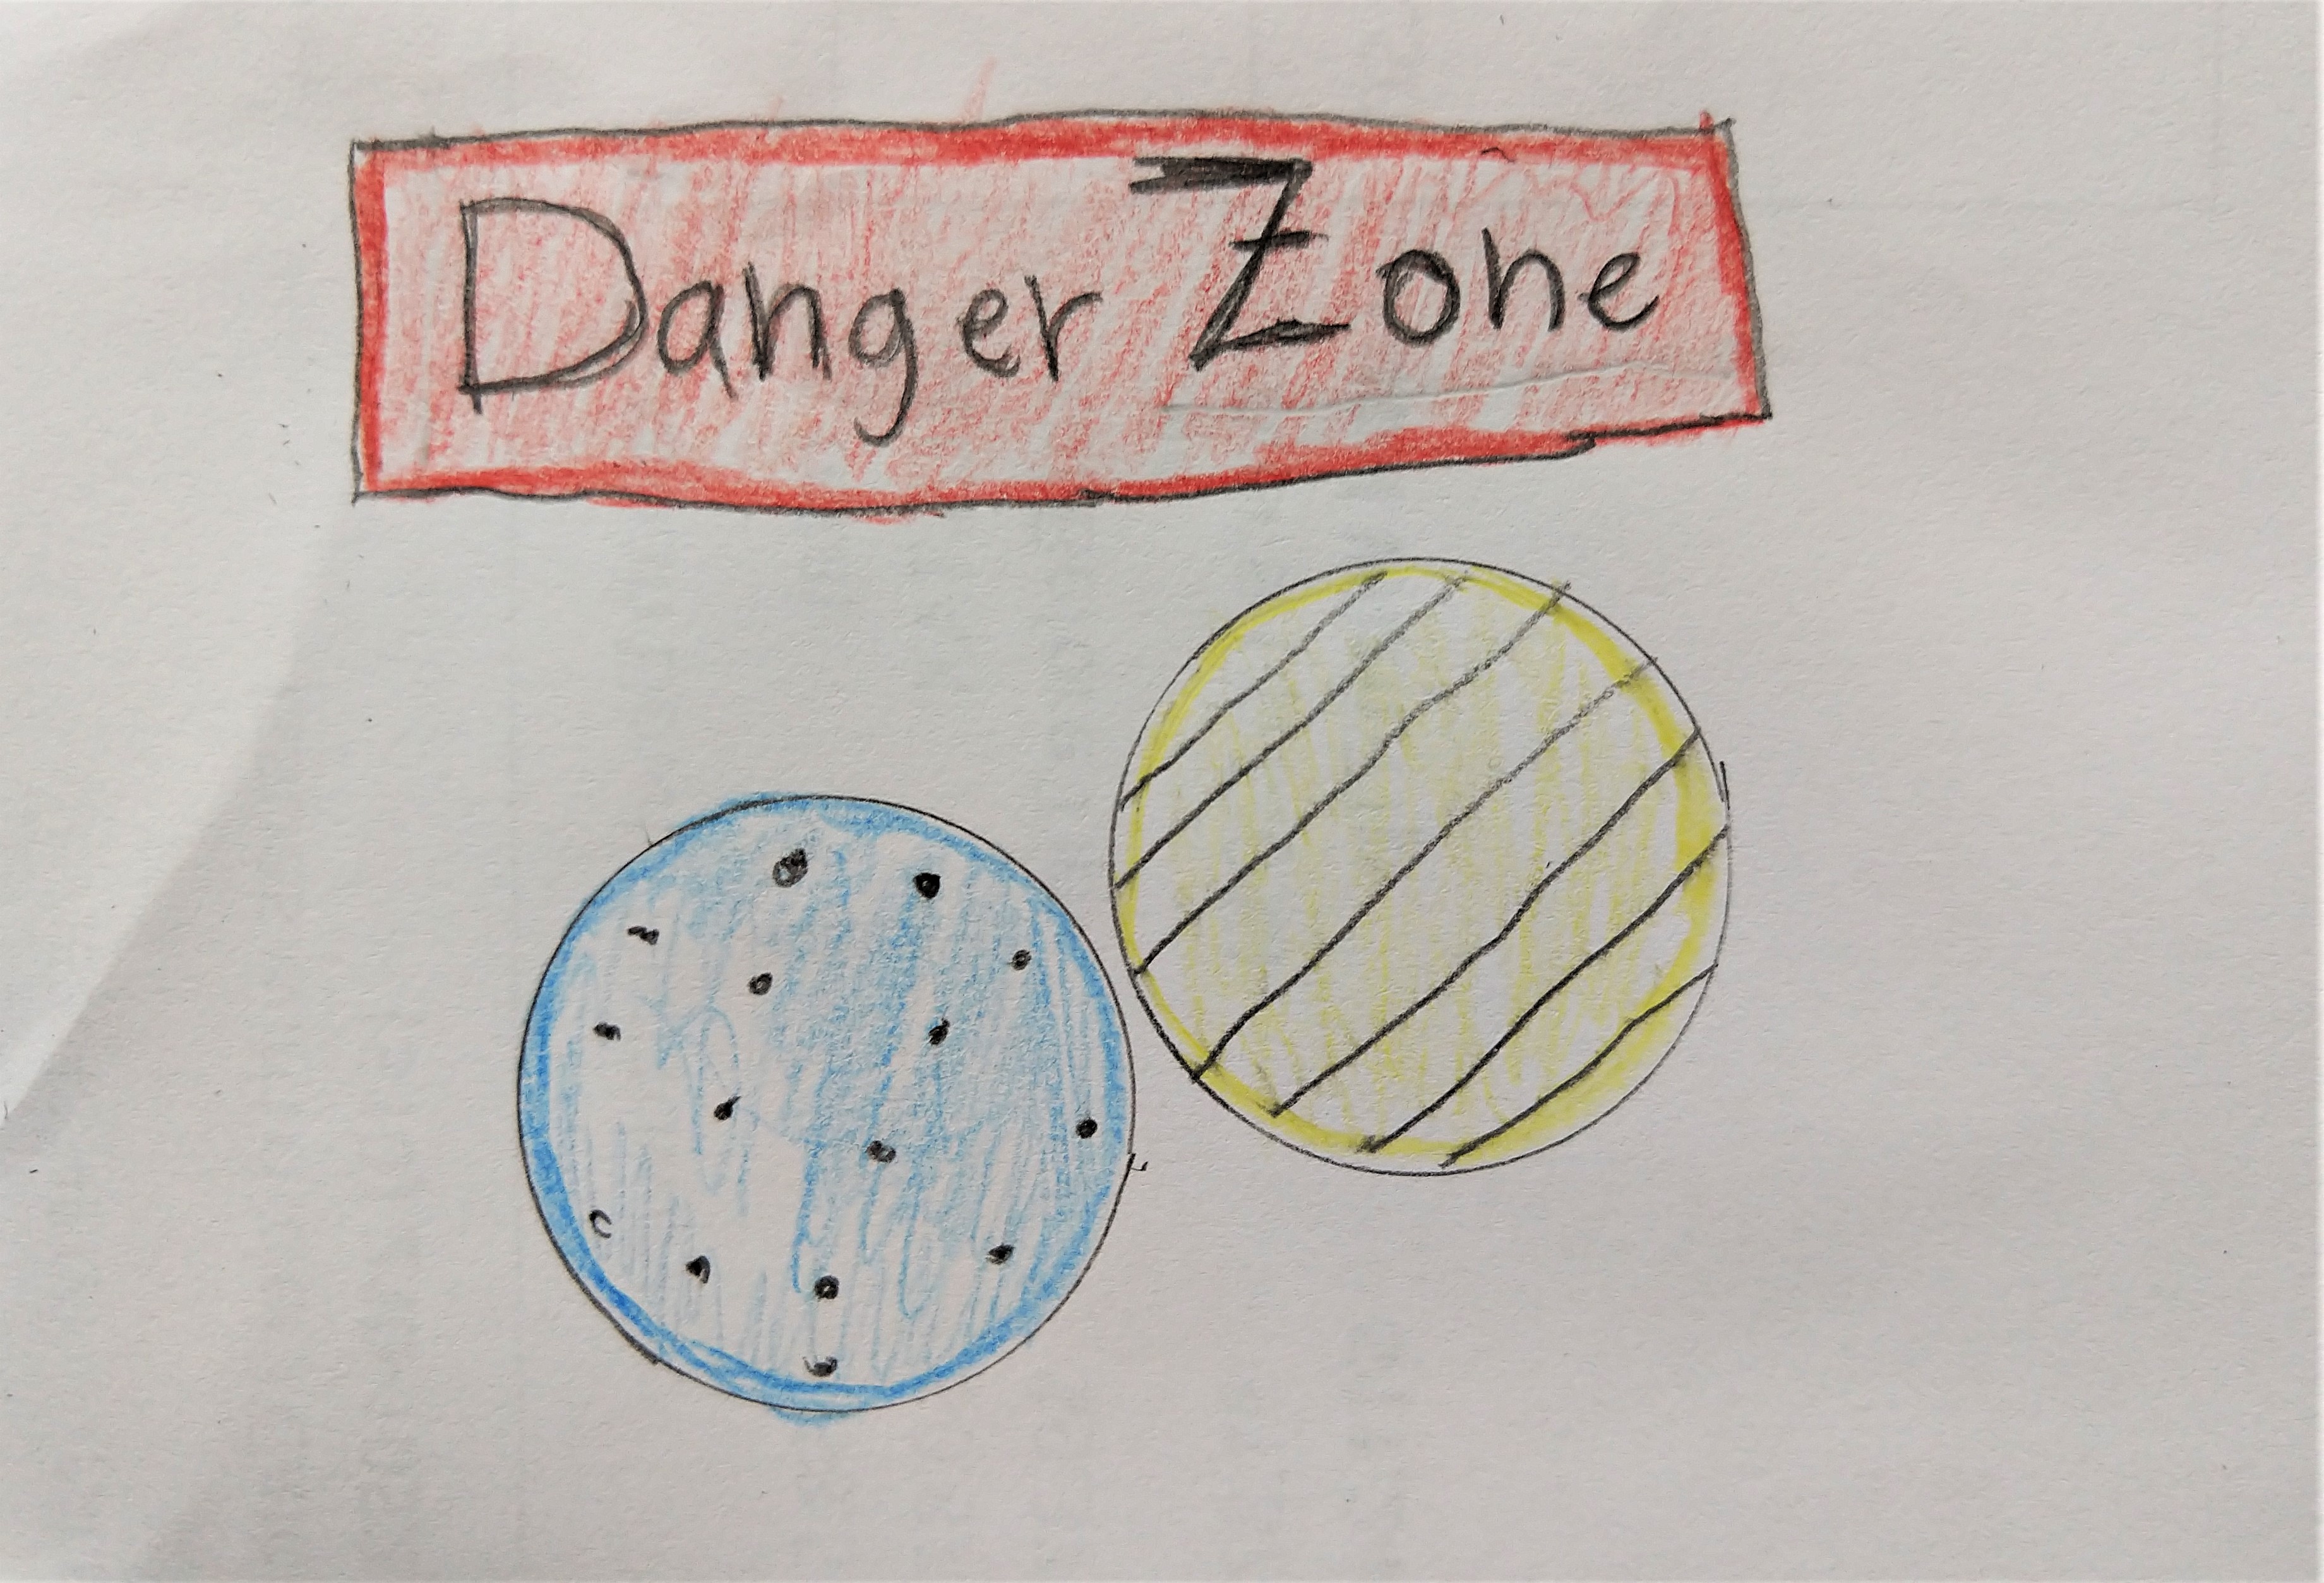 Danger Zone